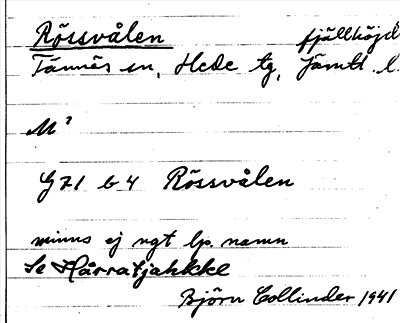 Rössvålen fjällhöjd
Tännäs sn, Hede tg, Jämtl. l.
M?
G 71 b 4 Rössvålen
minns ej ngt lp. namn
Se Hårratjahkke
Björn Collinder 1941